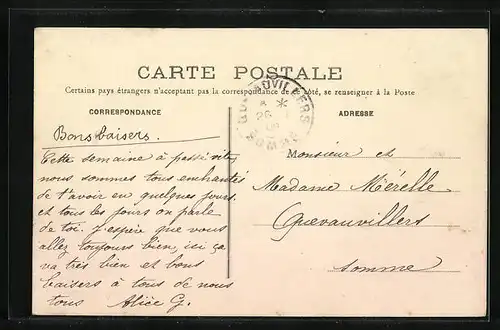 CARTE POSTALE
Certains pays étrangers n'acceptant pas la correspondance de ce côté, se renseigner à la Poste
CORRESPONDANCE
ADRESSE
Bons baisers.
Cette semaine à passé vite,
nous sommes tous enchantés
de t'avoir en quelques jours.
et tous les jours on parle
de toi. J'espère que vous
allez toujours bien, ici ça
va très bien et bons
baisers à tous de nous
tous Alice G.
Monsieur et
Madame Mérelle
Quevauvillers
Somme